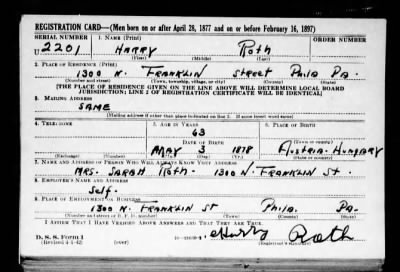 REGISTRATION CARD—(Men born on or after April 28, 1877 and on or before February 16, 1897)
SERIAL NUMBER 1. NAME (Print) ORDER NUMBER
U 2201 HARRY Roth
(First) (Middle) (Last)
2. PLACE OF RESIDENCE (Print)
1300 N. FRANKLIN STREET PHILA PA.
(Number and street) (Town, township, village, or city) (County) (State)
[THE PLACE OF RESIDENCE GIVEN ON THE LINE ABOVE WILL DETERMINE LOCAL BOARD
JURISDICTION; LINE 2 OF REGISTRATION CERTIFICATE WILL BE IDENTICAL]
3. MAILING ADDRESS
SAME
[Mailing address if other than place indicated on line 2. If same insert word same]
4. TELEPHONE 5. AGE IN YEARS 6. PLACE OF BIRTH
63
DATE OF BIRTH
MAY 3 1878 Austria-Hungary
(Exchange) (Number) (Mo.) (Day) (Yr.) (State or country)
7. NAME AND ADDRESS OF PERSON WHO WILL ALWAYS KNOW YOUR ADDRESS
MRS. SARAH Roth - 1300 N. FRANKLIN ST.
8. EMPLOYER'S NAME AND ADDRESS
Self.
9. PLACE OF EMPLOYMENT OR BUSINESS
1300 N. FRANKLIN ST PHILA. PA.
(Number and street or R. F. D. number) (Town) (County) (State)
I AFFIRM THAT I HAVE VERIFIED ABOVE ANSWERS AND THAT THEY ARE TRUE.
D. S. S. Form 1
(Revised 4-1-42) (over) Harry Roth